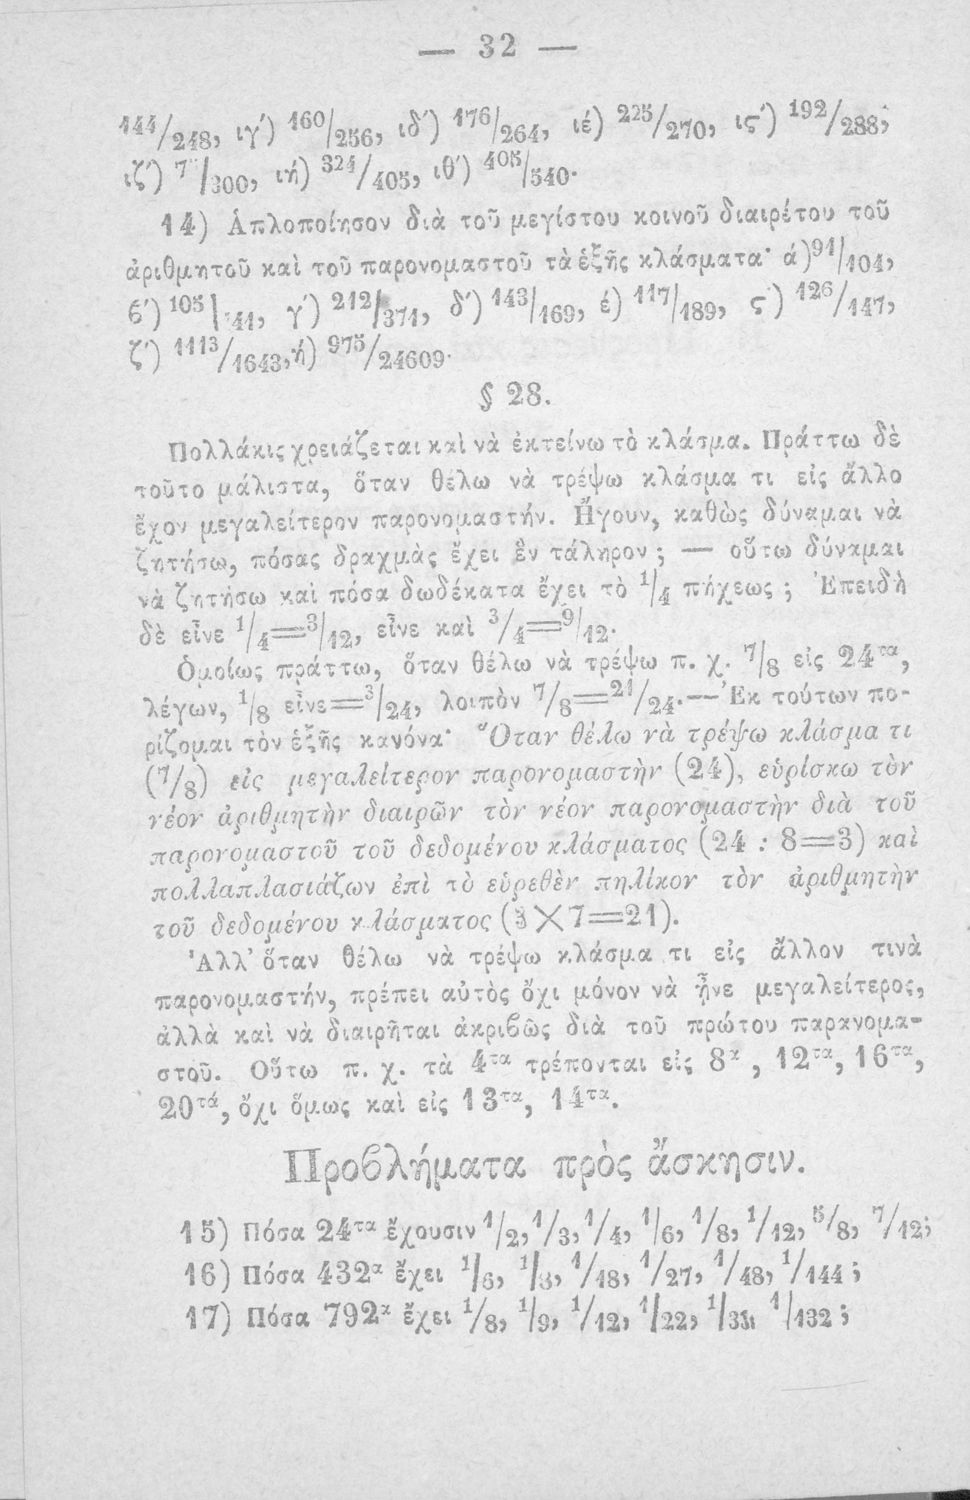 — 32 —
144/248, ιγ') 160/256, ιδ') 176/264, ιέ) 225/270, ις') 192/288,
ιζ') /300, ιή) 324/405, ιθ') 405/540.
14) Ἁπλοποίησον διὰ τοῦ μεγίστου κοινοῦ διαιρέτου τοῦ
ἀριθμητοῦ καὶ τοῦ παρονομαστοῦ τὰ ἑξῆς κλάσματα· ά) 91/104,
ϐ') 105/ γ') 212/371, δ') 143/169, έ) 117/189, ς') 126/147,
ζ') 1113/1643, ή) 975/24609.
§ 28.
Πολλάκις χρειάζεται καὶ νὰ ἐκτείνω τὸ κλάσμα. Πράττω δὲ
τοῦτο μάλιστα, ὅταν θέλω νὰ τρέψω κλάσμα τι εἰς ἄλλο
ἔχον μεγαλείτερον παρονομαστήν. Ἤγουν, καθὼς δύναμαι νὰ
ζητήσω, πόσας δραχμὰς ἔχει ἓν τάληρον ; — οὕτω δύναμαι
νὰ ζητήσω καὶ πόσα δωδέκατα ἔχει τὸ 1/4 πήχεως ; Ἐπειδὴ
δὲ εἶνε 1/4=3/12, εἶνε καὶ 3/4=9/12.
Ὁμοίως πράττω, ὅταν θέλω νὰ τρέψω π. χ. 7/8 εἰς 24τα,
λέγων, 1/8 εἶνε=3/24, λοιπὸν 7/8=21/24.—Ἐκ τούτων πο-
ρίζομαι τὸν ἑξῆς κανόνα· Ὅταν θέλω νὰ τρέψω κλάσμα τι
(7/8) εἰς μεγαλείτερον παρονομαστὴν (24), εὑρίσκω τὸν
νέον ἀριθμητὴν διαιρῶν τὸν νέον παρονομαστὴν διὰ τοῦ
παρονομαστοῦ τοῦ δεδομένου κλάσματος (24 : 8=3) καὶ
πολλαπλασιάζων ἐπὶ τὸ εὑρεθὲν πηλίκον τὸν ἀριθμητὴν
τοῦ δεδομένου κλάσματος (3×7=21).
Ἀλλ' ὅταν θέλω νὰ τρέψω κλάσμα τι εἰς ἄλλον τινὰ
παρονομαστήν, πρέπει αὐτὸς ὄχι μόνον νὰ ἦνε μεγαλείτερος,
ἀλλὰ καὶ νὰ διαιρῆται ἀκριϐῶς διὰ τοῦ πρώτου παρανομα-
στοῦ. Οὕτω π. χ. τὰ 4τα τρέπονται εἰς 8α, 12τα, 16τα,
20τά, ὄχι ὅμως καὶ εἰς 13τα, 14τα.
Προϐλήματα πρὸς ἄσκησιν.
15) Πόσα 24τα ἔχουσιν 1/2, 1/3, 1/4, 1/6, 1/8, 1/12, 5/8, 7/12;
16) Πόσα 432α ἔχει 1/6, 1/8, 1/18, 1/27, 1/48, 1/144 ;
17) Πόσα 792α ἔχει 1/8, 1/9, 1/12, 1/22, 1/132 ;